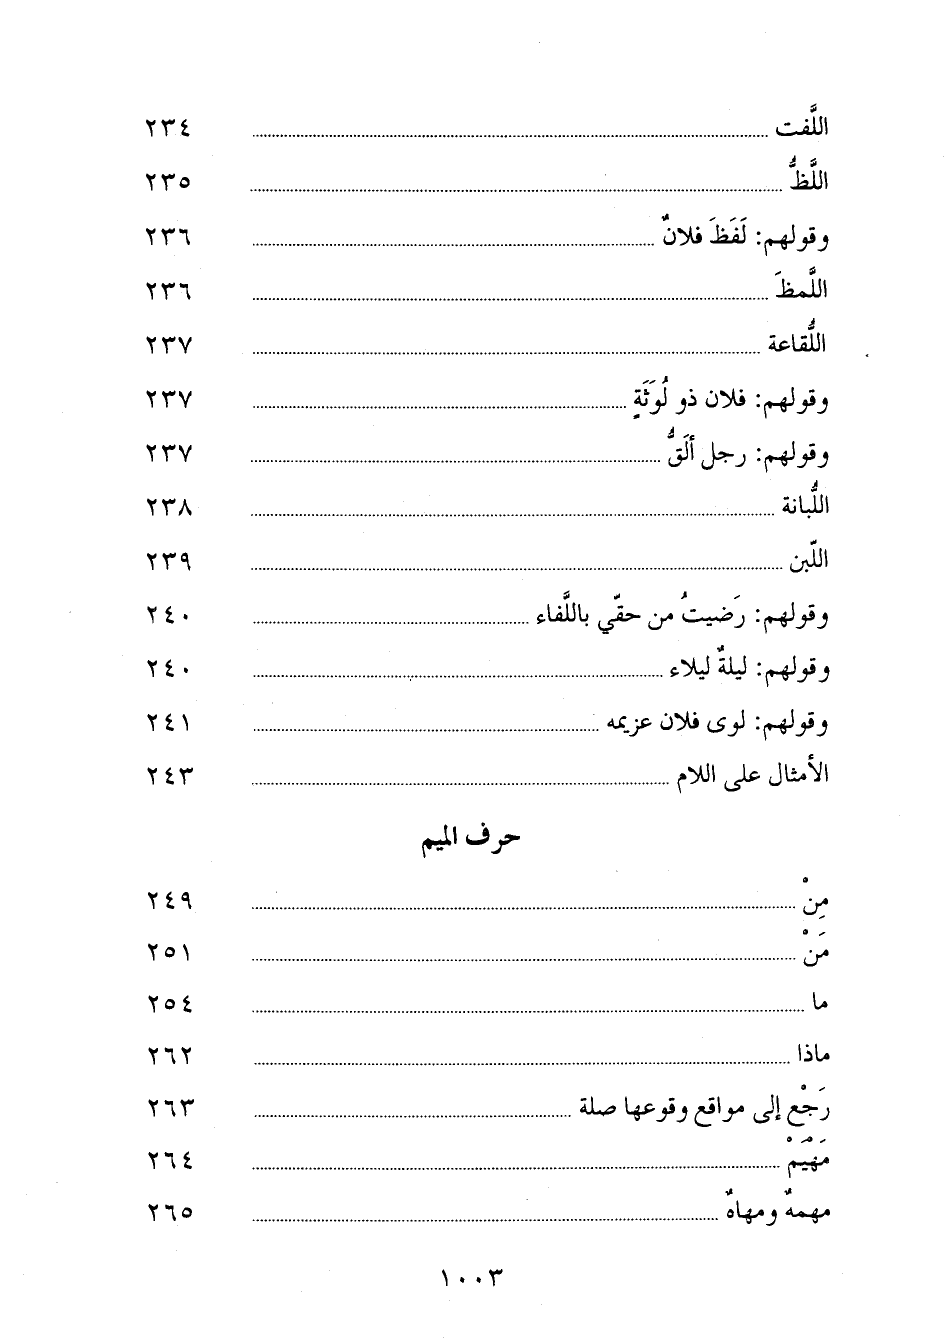 اللَّفت ........ ٢٣٤
اللَّظُّ ........ ٢٣٥
وقولهم: لَفَظَ فلانٌ ........ ٢٣٦
اللَّمظَ ........ ٢٣٦
اللُّقاعة ........ ٢٣٧
وقولهم: فلان ذو لُوَثَةٍ ........ ٢٣٧
وقولهم: رجل ألَقُّ ........ ٢٣٧
اللُّبانة ........ ٢٣٨
اللّبن ........ ٢٣٩
وقولهم: رَضيتُ من حقّي باللَّفاء ........ ٢٤٠
وقولهم: ليلةٌ ليلاء ........ ٢٤٠
وقولهم: لوى فلان عزيمه ........ ٢٤١
الأمثال على اللام ........ ٢٤٣
حرف الميم
مِنْ ........ ٢٤٩
مَنْ ........ ٢٥١
ما ........ ٢٥٤
ماذا ........ ٢٦٢
رَجْع إلى مواقع وقوعها صلة ........ ٢٦٣
مَهْيَمْ ........ ٢٦٤
مهمهٌ ومهاهٌ ........ ٢٦٥
١٠٠٣